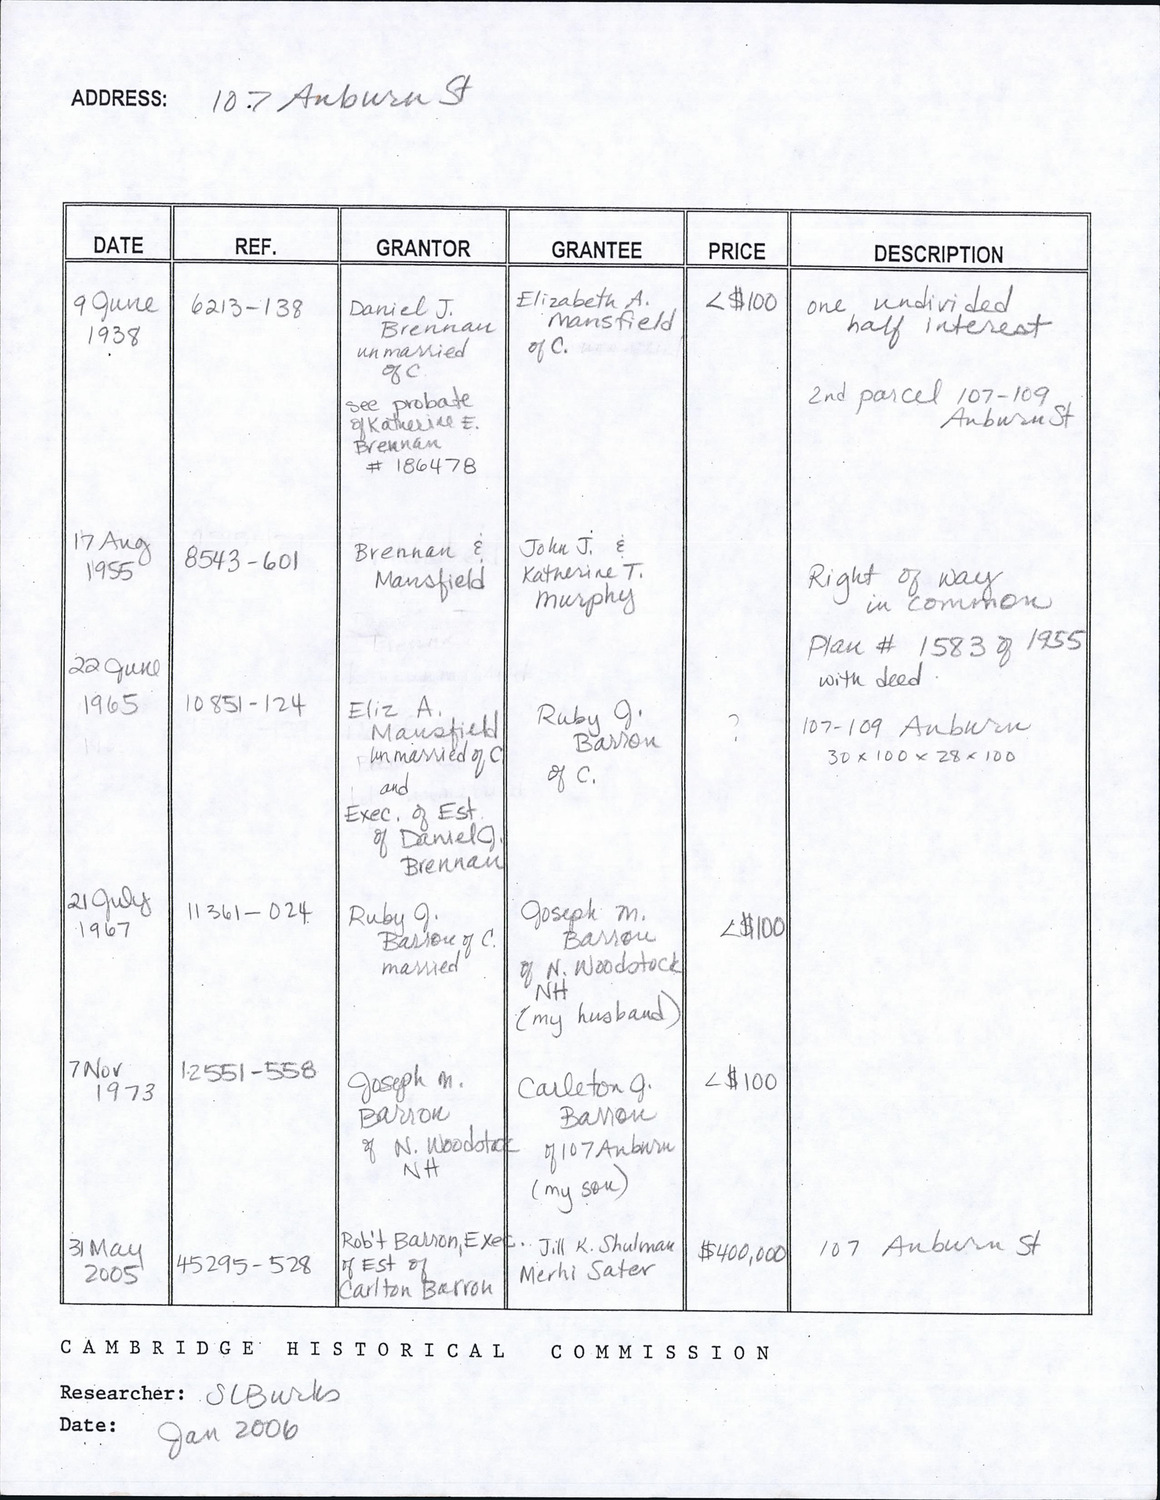 ADDRESS: 107 Auburn St
DATE REF. GRANTOR GRANTEE PRICE DESCRIPTION
9 June
1938
6213-138
Daniel J.
Brennan
unmarried
of C
see probate
of Katherine E.
Brennan
# 186478
Elizabeth A.
Mansfield
of C.
<$100
one undivided
half interest
2nd parcel 107-109
Auburn St
17 Aug
1955
8543-601
Brennan &
Mansfield
John J. &
Katherine T.
Murphy
Right of way
in common
Plan # 1583 of 1955
with deed
22 June
1965
10851-124
Eliz A.
Mansfield
unmarried of C
and
Exec. of Est.
of Daniel J.
Brennan
Ruby J.
Barron
of C.
?
107-109 Auburn
30 x 100 x 28 x 100
21 July
1967
11361-024
Ruby J.
Barron of C.
married
Joseph M.
Barron
of N. Woodstock
NH
(my husband)
<$100
7 Nov
1973
12551-558
Joseph M.
Barron
of N. Woodstock
NH
Carleton J.
Barron
of 107 Auburn
(my son)
<$100
31 May
2005
45295-528
Rob't Barron, Exec.
of Est of
Carlton Barron
Jill K. Shulman
Merhi Sater
$400,000
107 Auburn St
CAMBRIDGE HISTORICAL COMMISSION
Researcher: SLBurks
Date: Jan 2006